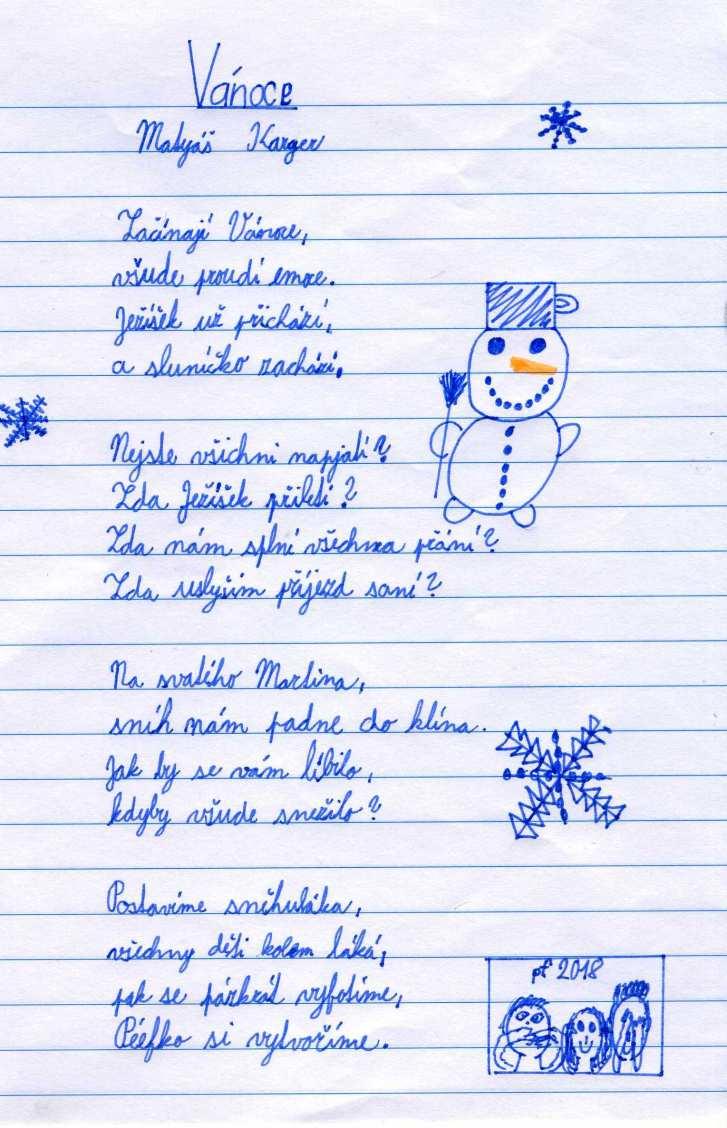 Vánoce
Matyáš Karger
Začínají Vánoce,
všude proudí emoce.
Ježíšek už přichází,
a sluníčko zachází.
Nejste všichni napjatí?
Zda Ježíšek přiletí?
Zda nám splní všechna přání?
Zda uslyšim příjezd saní?
Na svatého Martina,
sníh nám padne do klína.
Jak by se vám líbilo,
kdyby všude snežilo?
Postavíme sněhuláka,
všechny děti kolem láká,
pak se párkrát vyfotíme,
Péefko si vytvoříme.
pf 2018